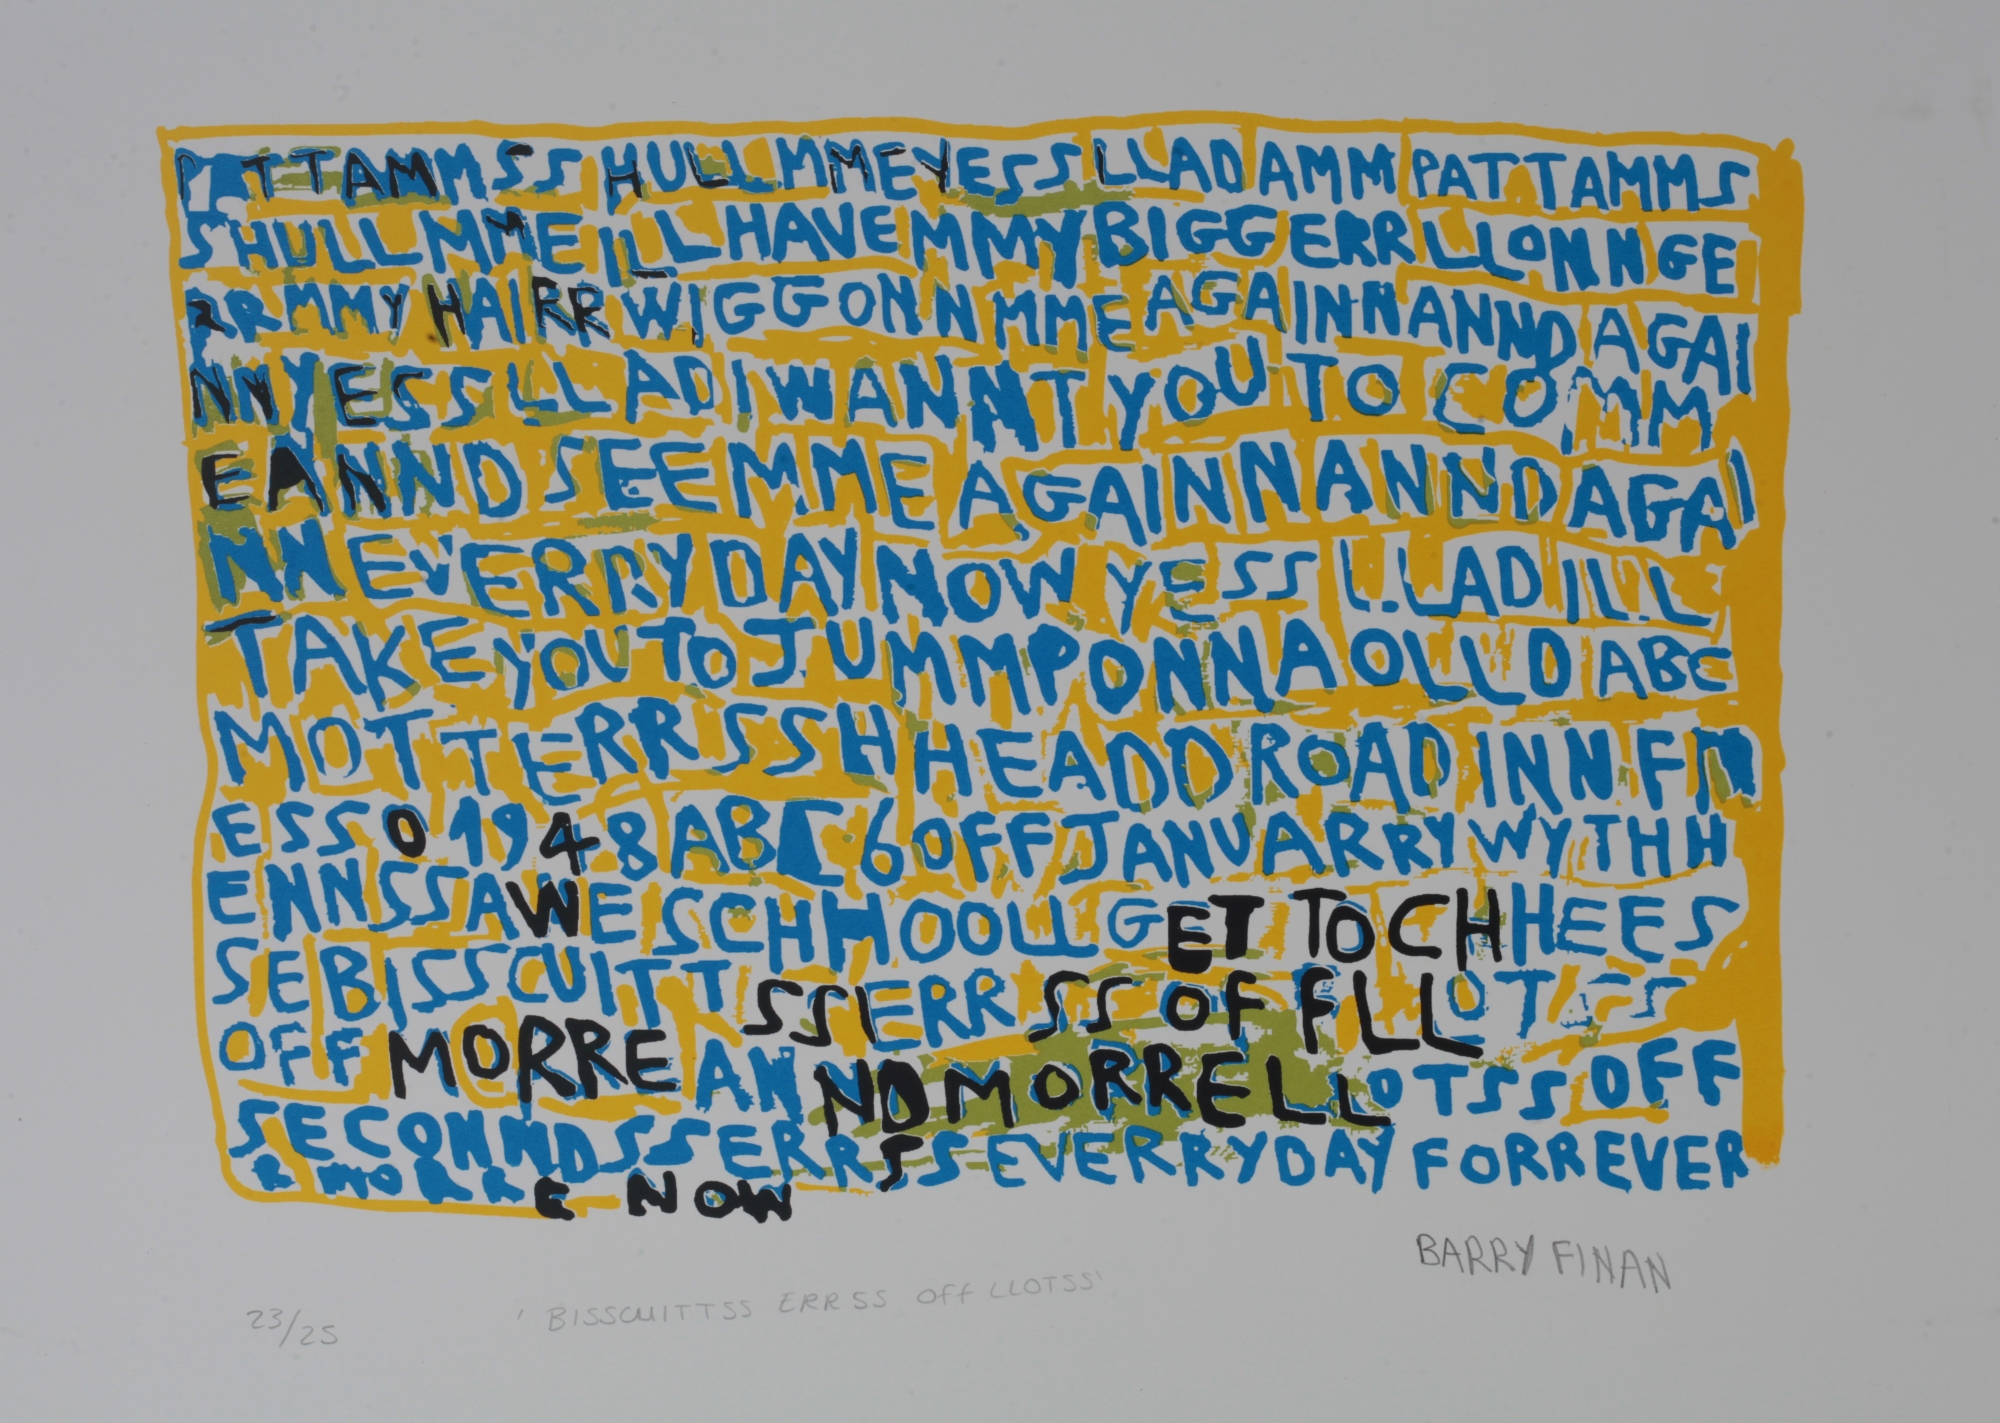 PATTAMMSS HULLMMEYESSLLADAMMPATTAMMS
SHULLMMEILLHAVEMMYBIGGERRLLONNGE
RRMMYHAIRRWIGGONNMMEAGAINNANNDAGAI
NNYESSLLADIWANNTYOUTOCOMM
EANNDSEEMMEAGAINNANNDAGAI
NNEVERRYDAYNOWYESSLLADILL
TAKEYOUTOJUMMPONNAOLLDABC
MOTTERRSSHHEADDROADINNFN
ESSO1948ABC6OFFJANUARRYWYTHH
ENNSSAWESCHHOOLLGETTOCHHEES
SEBISSCUITTSSERRSSOFFLLOTSS
OFFMORREANNDMORRELLOTSSOFF
SECONNDSSERRSSEVERRYDAYFORREVER
R MORRE NOW
BARRY FINAN
23/25 'BISSCUITTSS ERRSS OFF LLOTSS'